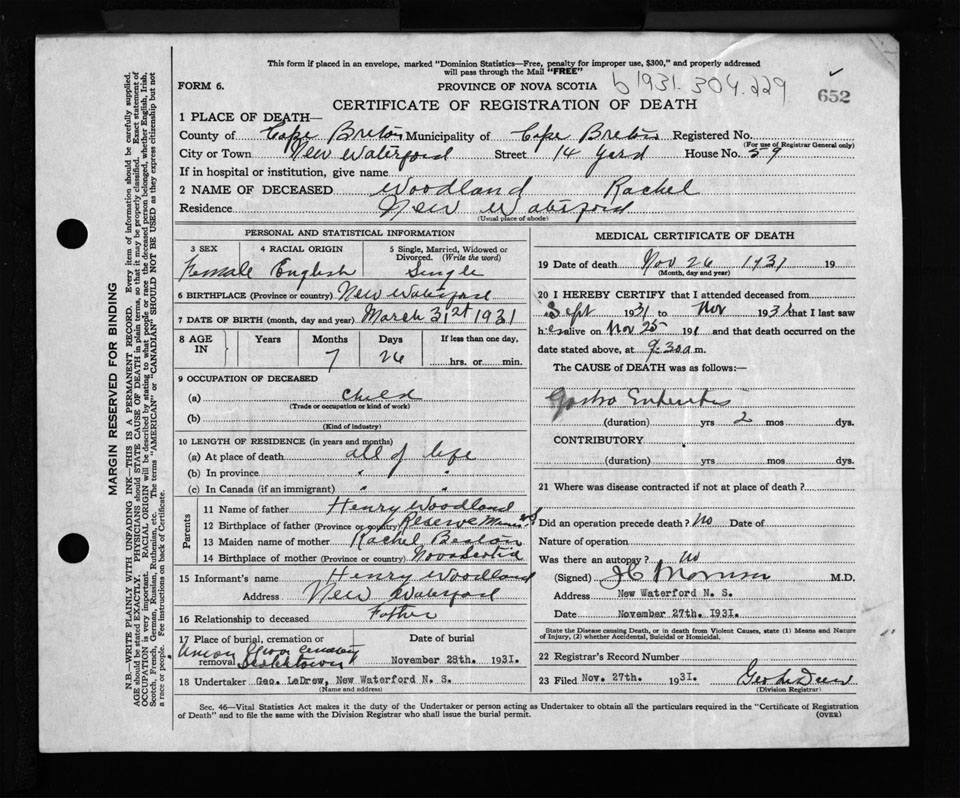 This form if placed in an envelope, marked "Dominion Statistics—Free, penalty for improper use, $300," and properly addressed
will pass through the Mail "FREE"
FORM 6.
PROVINCE OF NOVA SCOTIA
b 1931. 304.229
652
CERTIFICATE OF REGISTRATION OF DEATH
1 PLACE OF DEATH—
County of Cape Breton Municipality of Cape Breton Registered No.
(For use of Registrar General only)
City or Town New Waterford Street 14 Yard House No. 59
If in hospital or institution, give name
2 NAME OF DECEASED Woodland Rachel
Residence New Waterford
(Usual place of abode)
PERSONAL AND STATISTICAL INFORMATION
3 SEX 4 RACIAL ORIGIN 5 Single, Married, Widowed or Divorced. (Write the word)
Female English Single
6 BIRTHPLACE (Province or country) New Waterford
7 DATE OF BIRTH (month, day and year) March 31st 1931
8 AGE IN Years Months Days If less than one day,
7 26 hrs. or min.
9 OCCUPATION OF DECEASED
(a) Child
(Trade or occupation or kind of work)
(b)
(Kind of industry)
10 LENGTH OF RESIDENCE (in years and months)
(a) At place of death all of life
(b) In province " "
(c) In Canada (if an immigrant) " "
Parents
11 Name of father Henry Woodland
12 Birthplace of father (Province or country) Reserve Mines NS
13 Maiden name of mother Rachel
14 Birthplace of mother (Province or country) Nova Scotia
15 Informant's name Henry Woodland
Address New Waterford
16 Relationship to deceased Father
17 Place of burial, cremation or removal Date of burial
Union Cemetery
Scotchtown November 28th. 1931.
18 Undertaker Geo. LeDrew, New Waterford N. S.
(Name and address)
MEDICAL CERTIFICATE OF DEATH
19 Date of death Nov 26 1931 19
(Month, day and year)
20 I HEREBY CERTIFY that I attended deceased from
Sept 1931 to Nov 1931 that I last saw
her alive on Nov 25 191 and that death occurred on the
date stated above, at 9:30 a m.
The CAUSE of DEATH was as follows:—
Gastro Enteritis
(duration) yrs 2 mos dys.
CONTRIBUTORY
(duration) yrs mos dys.
21 Where was disease contracted if not at place of death?
Did an operation precede death? No Date of
Nature of operation
Was there an autopsy? No
(Signed) M.D.
Address New Waterford N. S.
Date November 27th. 1931.
State the Disease causing Death, or in death from Violent Causes, state (1) Means and Nature
of Injury, (2) whether Accidental, Suicidal or Homicidal.
22 Registrar's Record Number
23 Filed Nov. 27th. 1931. Geo LeDrew
(Division Registrar)
Sec. 46—Vital Statistics Act makes it the duty of the Undertaker or person acting as Undertaker to obtain all the particulars required in the "Certificate of Registration
of Death" and to file the same with the Division Registrar who shall issue the burial permit.
(OVER)
MARGIN RESERVED FOR BINDING
N.B.—WRITE PLAINLY WITH UNFADING INK—THIS IS A PERMANENT RECORD. Every item of information should be carefully supplied.
AGE should be stated EXACTLY. PHYSICIANS should STATE CAUSE OF DEATH in plain terms, so that it may be properly classified. Exact statement of
OCCUPATION is very important. RACIAL ORIGIN will be described by stating to what people or race the deceased person belonged, whether English, Irish,
Scotch, French, German, Russian, Ruthenian, etc. The terms "AMERICAN" or "CANADIAN" SHOULD NOT BE USED as they express citizenship but not
a race or people. Fee instructions on back of Certificate.